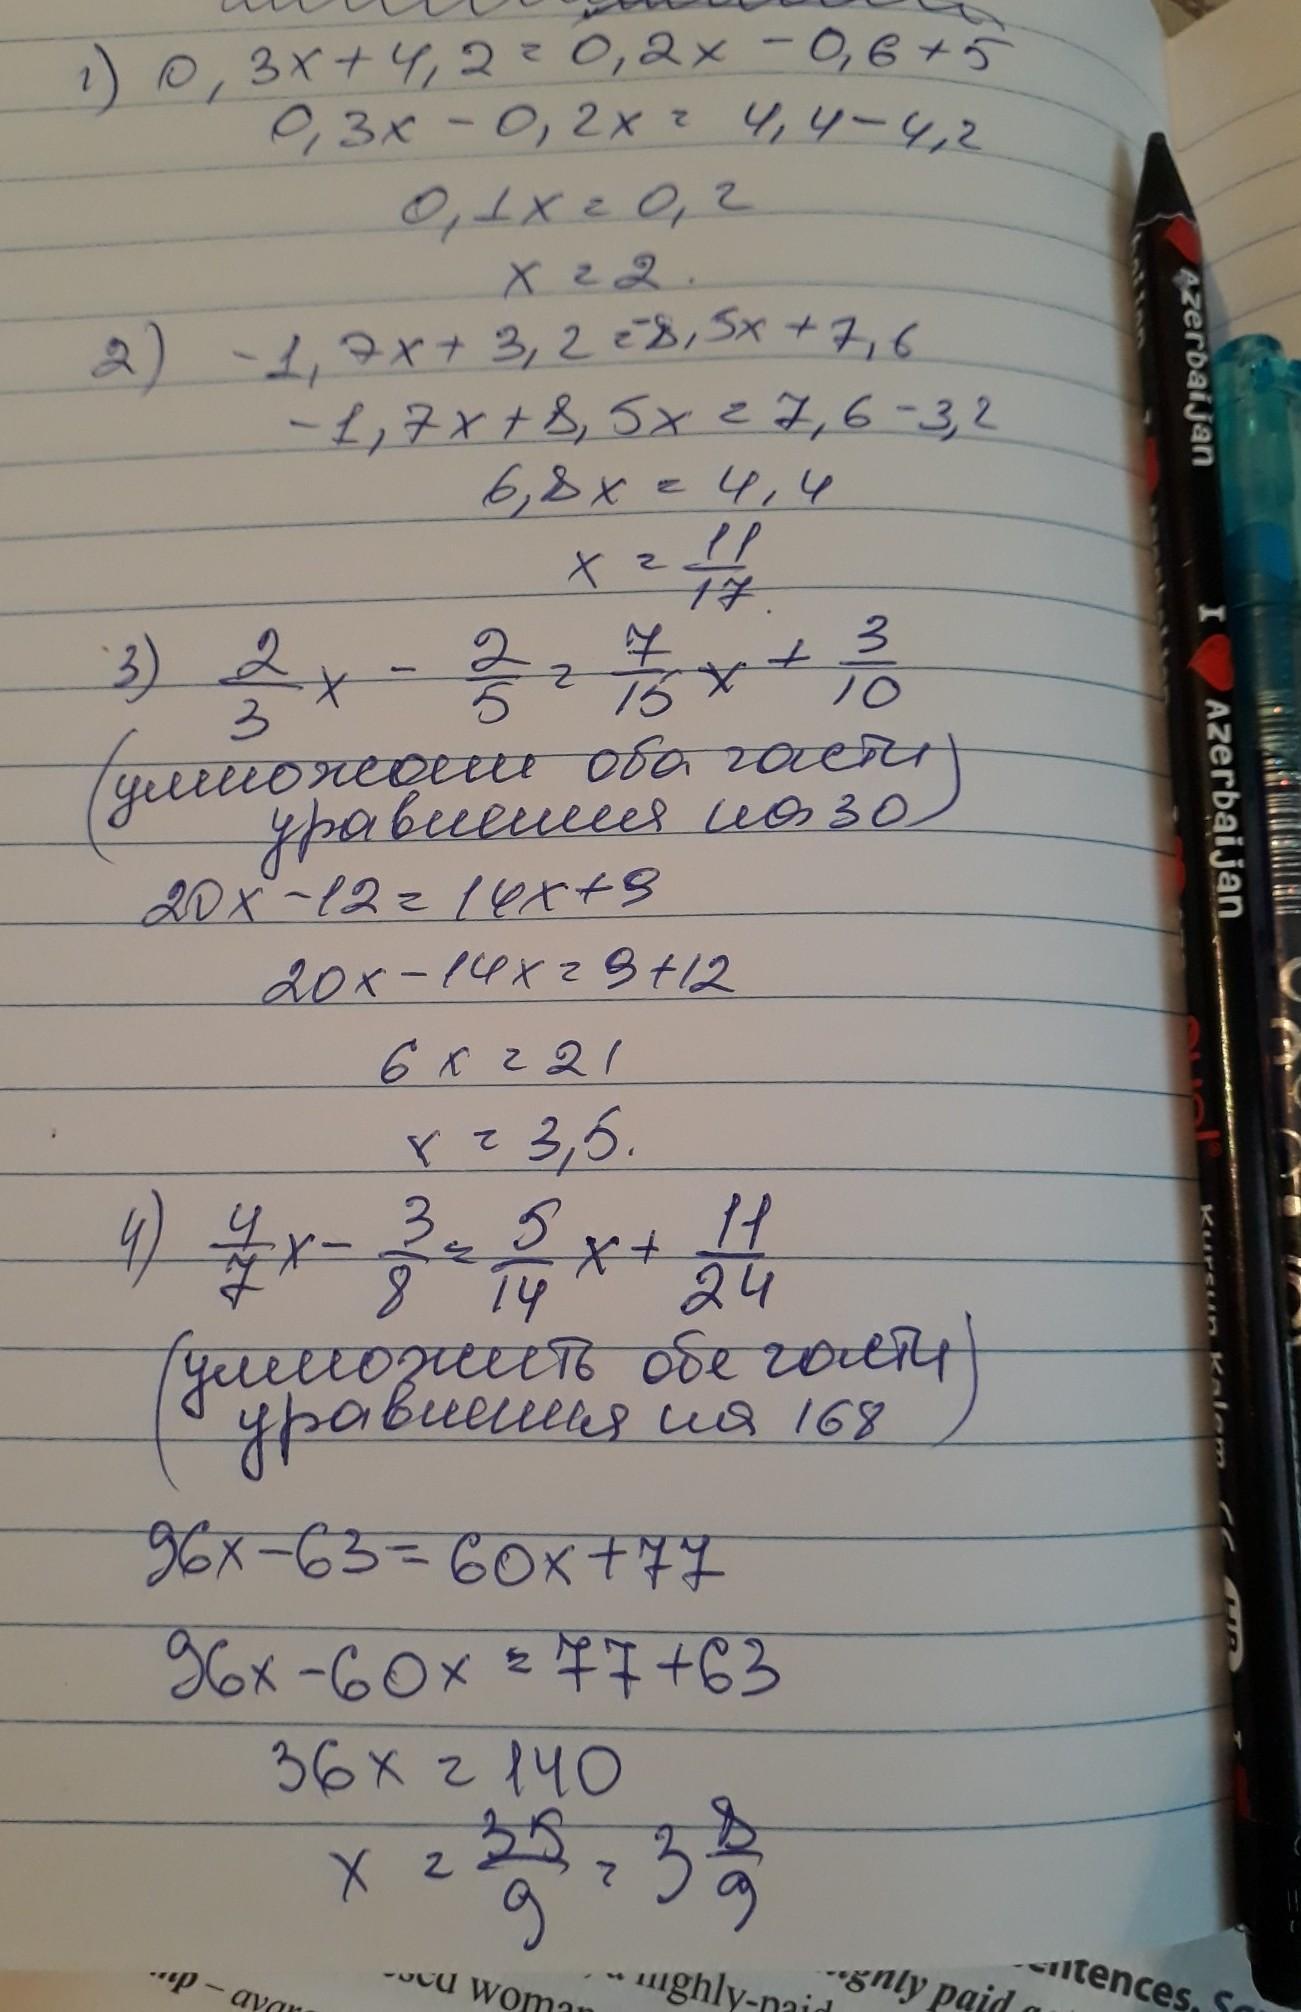 1) 0,3x+4,2=0,2x-0,6+5
0,3x-0,2x=4,4-4,2
0,1x=0,2
x=2.
2) -1,7x+3,2=-8,5x+7,6
-1,7x+8,5x=7,6-3,2
6,8x=4,4
x=11/17.
3) 2/3x-2/5=7/15x+3/10
(умножаем оба части
уравнения на 30)
20x-12=14x+9
20x-14x=9+12
6x=21
x=3,5.
4) 4/7x-3/8=5/14x+11/24
(умножить обе части
уравнения на 168)
96x-63=60x+77
96x-60x=77+63
36x=140
x=35/9=3 8/9
Azerbaijan
I ❤ Azerbaijan
Kurşun Kalem
sed woman
highly-paid
ghly paid
entences.